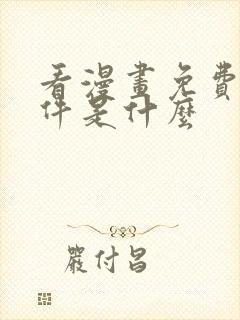 看漫畫免費
件是什麼
嚴付昌